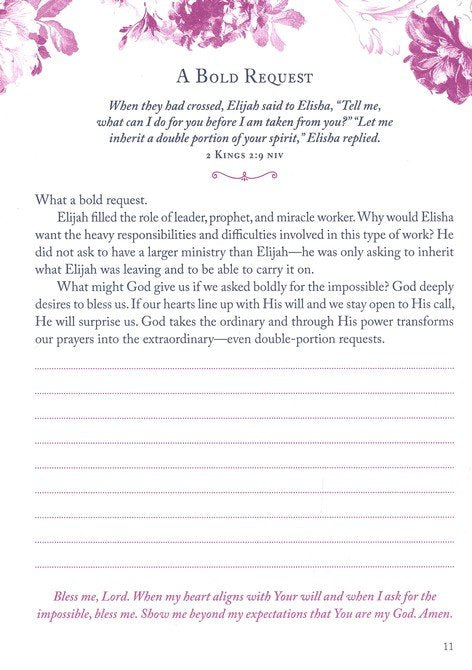 A Bold Request
When they had crossed, Elijah said to Elisha, “Tell me,
what can I do for you before I am taken from you?” “Let me
inherit a double portion of your spirit,” Elisha replied.
2 Kings 2:9 NIV
What a bold request.
Elijah filled the role of leader, prophet, and miracle worker. Why would Elisha
want the heavy responsibilities and difficulties involved in this type of work? He
did not ask to have a larger ministry than Elijah—he was only asking to inherit
what Elijah was leaving and to be able to carry it on.
What might God give us if we asked boldly for the impossible? God deeply
desires to bless us. If our hearts line up with His will and we stay open to His call,
He will surprise us. God takes the ordinary and through His power transforms
our prayers into the extraordinary—even double-portion requests.
Bless me, Lord. When my heart aligns with Your will and when I ask for the
impossible, bless me. Show me beyond my expectations that You are my God. Amen.
11